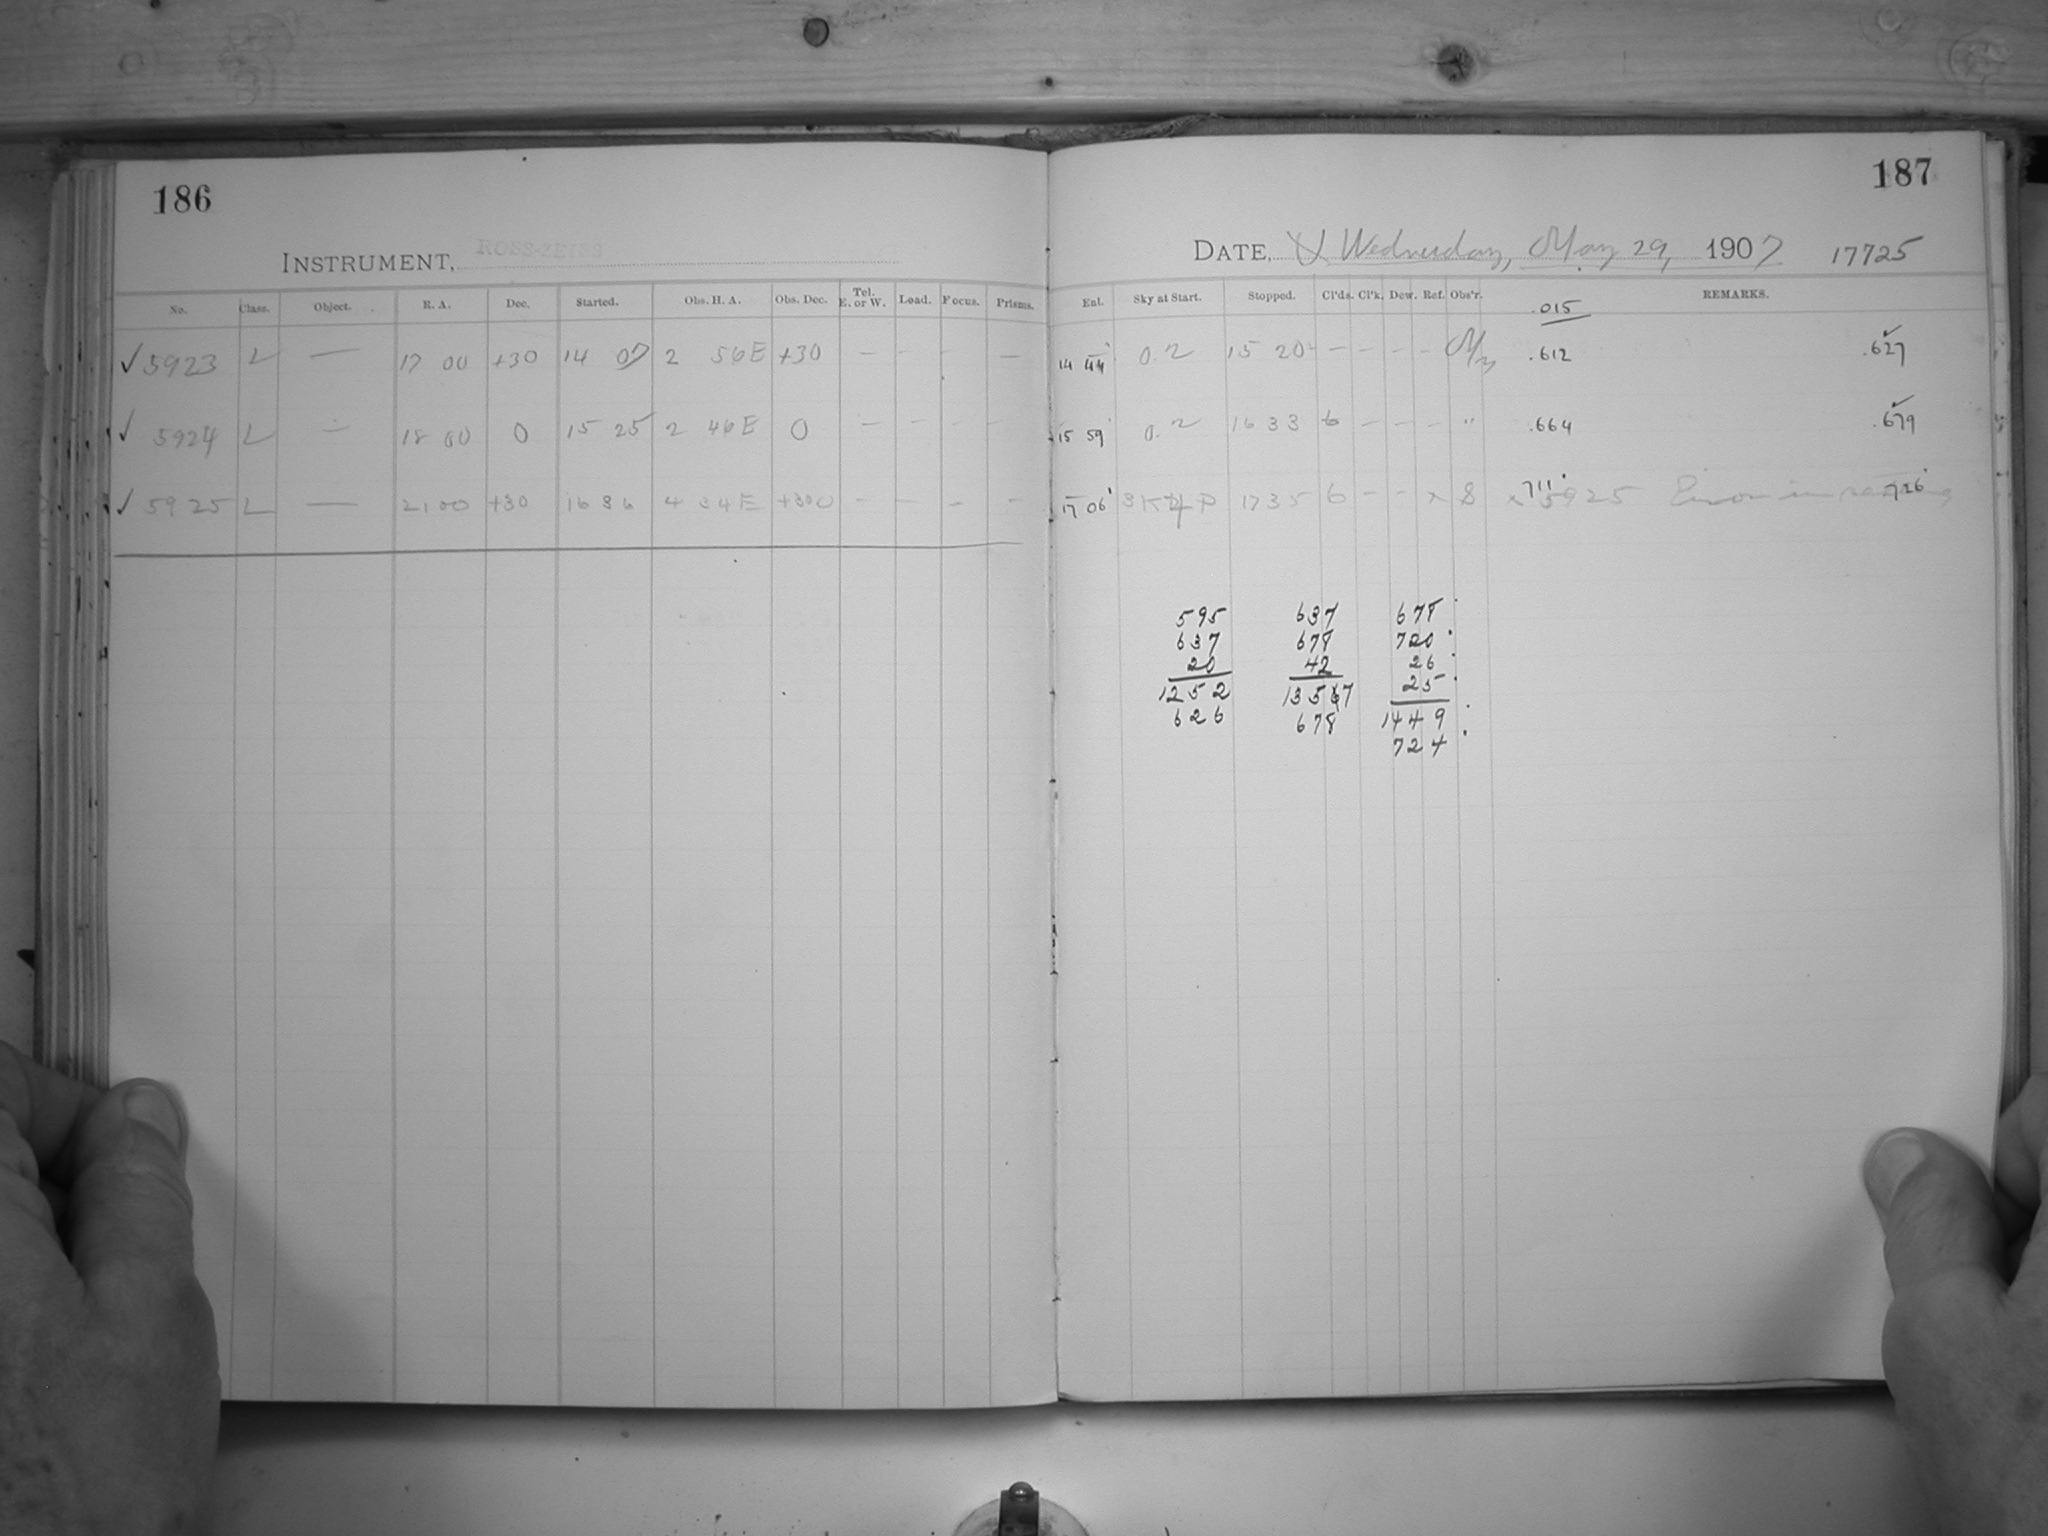 186
INSTRUMENT, ROSS-ZEISS
No. Class. Object. R. A. Dec. Started. Obs. H. A. Obs. Dec. Tel. E. or W. Load. Focus. Prisms.
✓ 5923 L — 17 00 +30 14 07 2 56 E +30 — - - —
✓ 5924 L — 18 00 0 15 25 2 46 E 0 — - - —
✓ 5925 L — 21 00 +30 16 36 4 34 E +300 — — — —
187
DATE, Wednesday, May 29, 1907 17725
Ent. Sky at Start. Stopped. Cl'ds. Cl'k. Dew. Ref. Obs'r. REMARKS.
.015
14 44 0.2 15 20 — — — — M .612 .627
15 59 0.2 16 33 6 — — — " .664 .679
17 06 17 35 6 — — × S × 5925 Error in .711 .726
595 637 678
637 678 720
20 42 26
25
1252 1357 1449
626 678 724